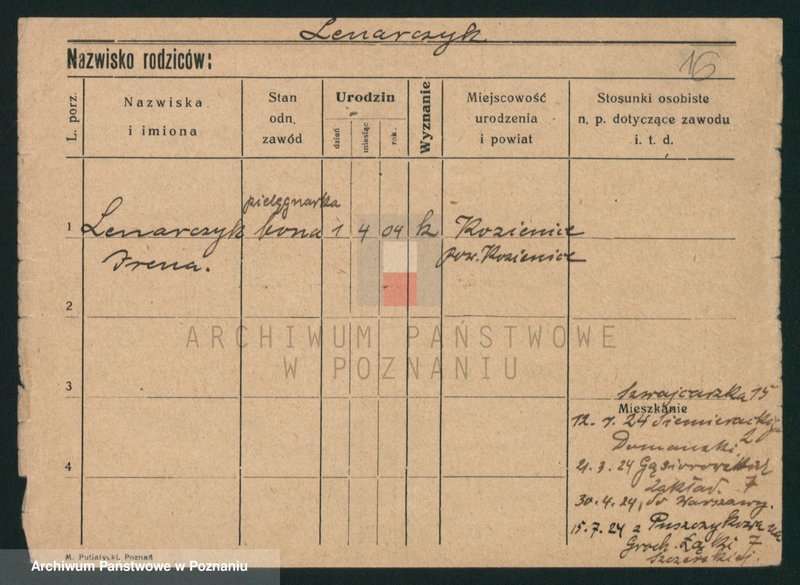 Lenarczyk
Nazwisko rodziców:
16
L. porz.
Nazwiska
i imiona
Stan
odn.
zawód
Urodzin
dzień
miesiąc
rok.
Wyznanie
Miejscowość
urodzenia
i powiat
Stosunki osobiste
n. p. dotyczące zawodu
i. t. d.
pielęgnarka
1 Lenarczyk bona 1 4 04 k Kozienice
Irena. pow. Kozienice
2
ARCHIWUM PAŃSTWOWE
W POZNANIU
3
Szwajcarska 15
Mieszkanie
12. 1. 24 Siemieradzkiego
2
Domanski
4
21. 3. 24
Zakład. 7
30. 4. 24, do Warszawy.
15. 7. 24 z Puszczykowa
Groch. Łąki 7
M. Putiatycki, Poznań
Archiwum Państwowe w Poznaniu